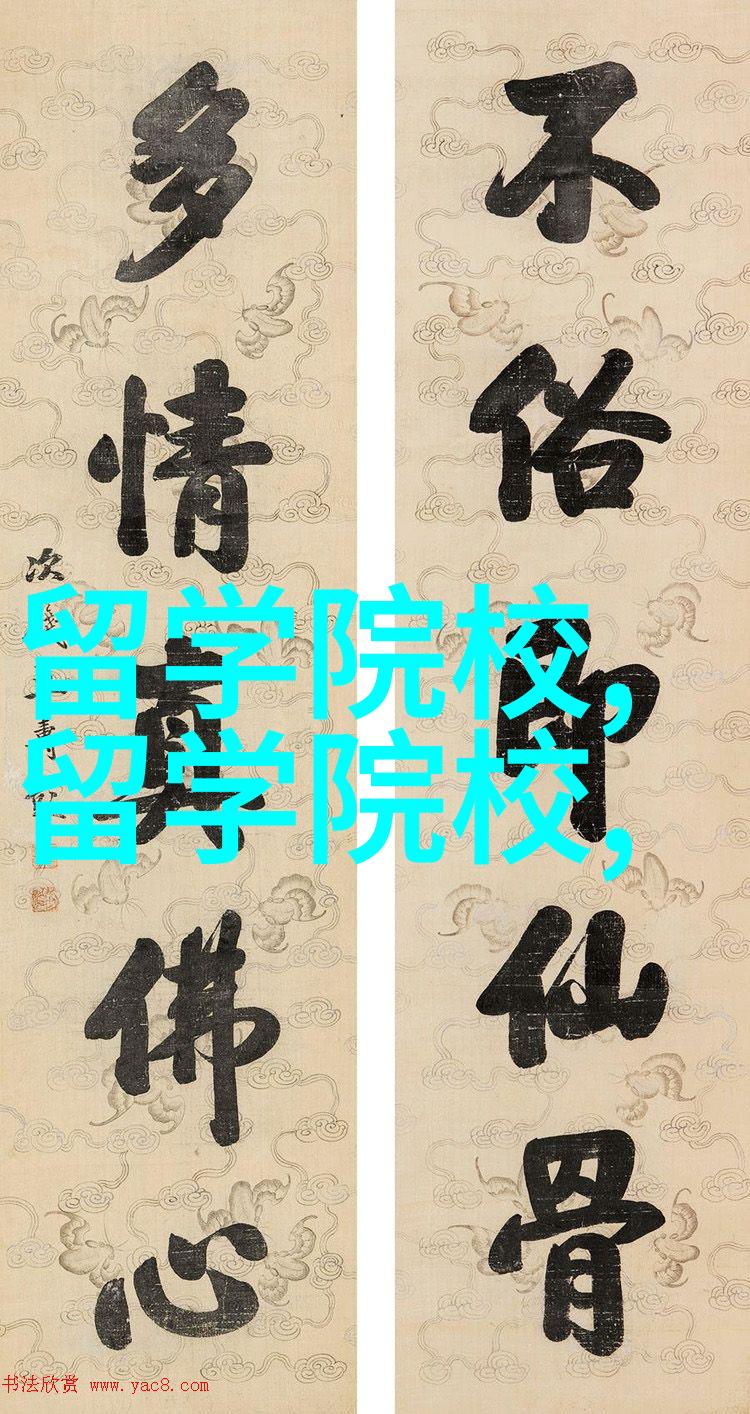 不俗即仙骨
多情真佛心
留学院校,
留学院校,
书法欣赏 www.yac8.com